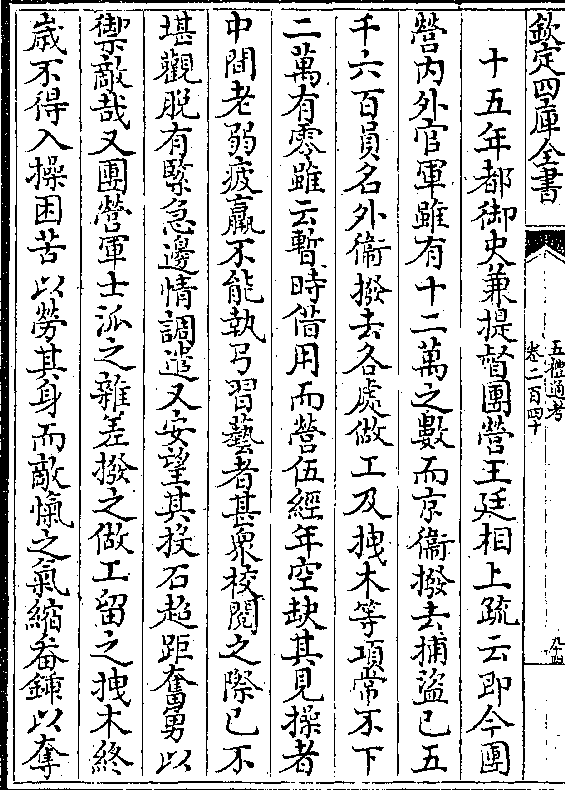 欽定四庫全書
五禮通考
卷二百四十
九十四
十五年都御史兼提督團營王廷相上疏云即今團
營内外官軍雖有十二萬之數而京衞撥去捕盜已五
千六百員名外衞撥去各處做工及拽木等項常不下
二萬有零雖云暫時借用而營伍經年空缺其見操者
中間老弱疲羸不能執弓習藝者甚衆校閱之際已不
堪觀脫有緊急邊情調遣又安望其投石超距奮勇以
禦敵哉又團營軍士派之雜差撥之做工留之拽木終
嵗不得入操困苦以勞其身而敵愾之氣縮畚鍤以奪